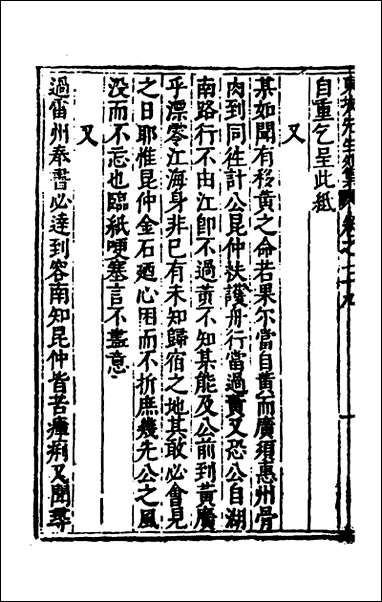 東坡先生外集 卷之七十九 一
自重乞呈此紙
又
某如聞有移黃之命若果尔當自黃而廣須惠州骨
肉到同徃計公昆仲扶護舟行當過黃又恐公自湖
南路行不由江即不過黃不知某能及公前到黃廣
乎漂零江海身非已有未知歸宿之地其敢必會見
之日耶惟昆仲金石廼心困而不折庶幾先公之風
没而不忘也臨紙哽塞言不盡意
又
過雷州奉書必達到容南知昆仲皆苦瘴痢又聞尋